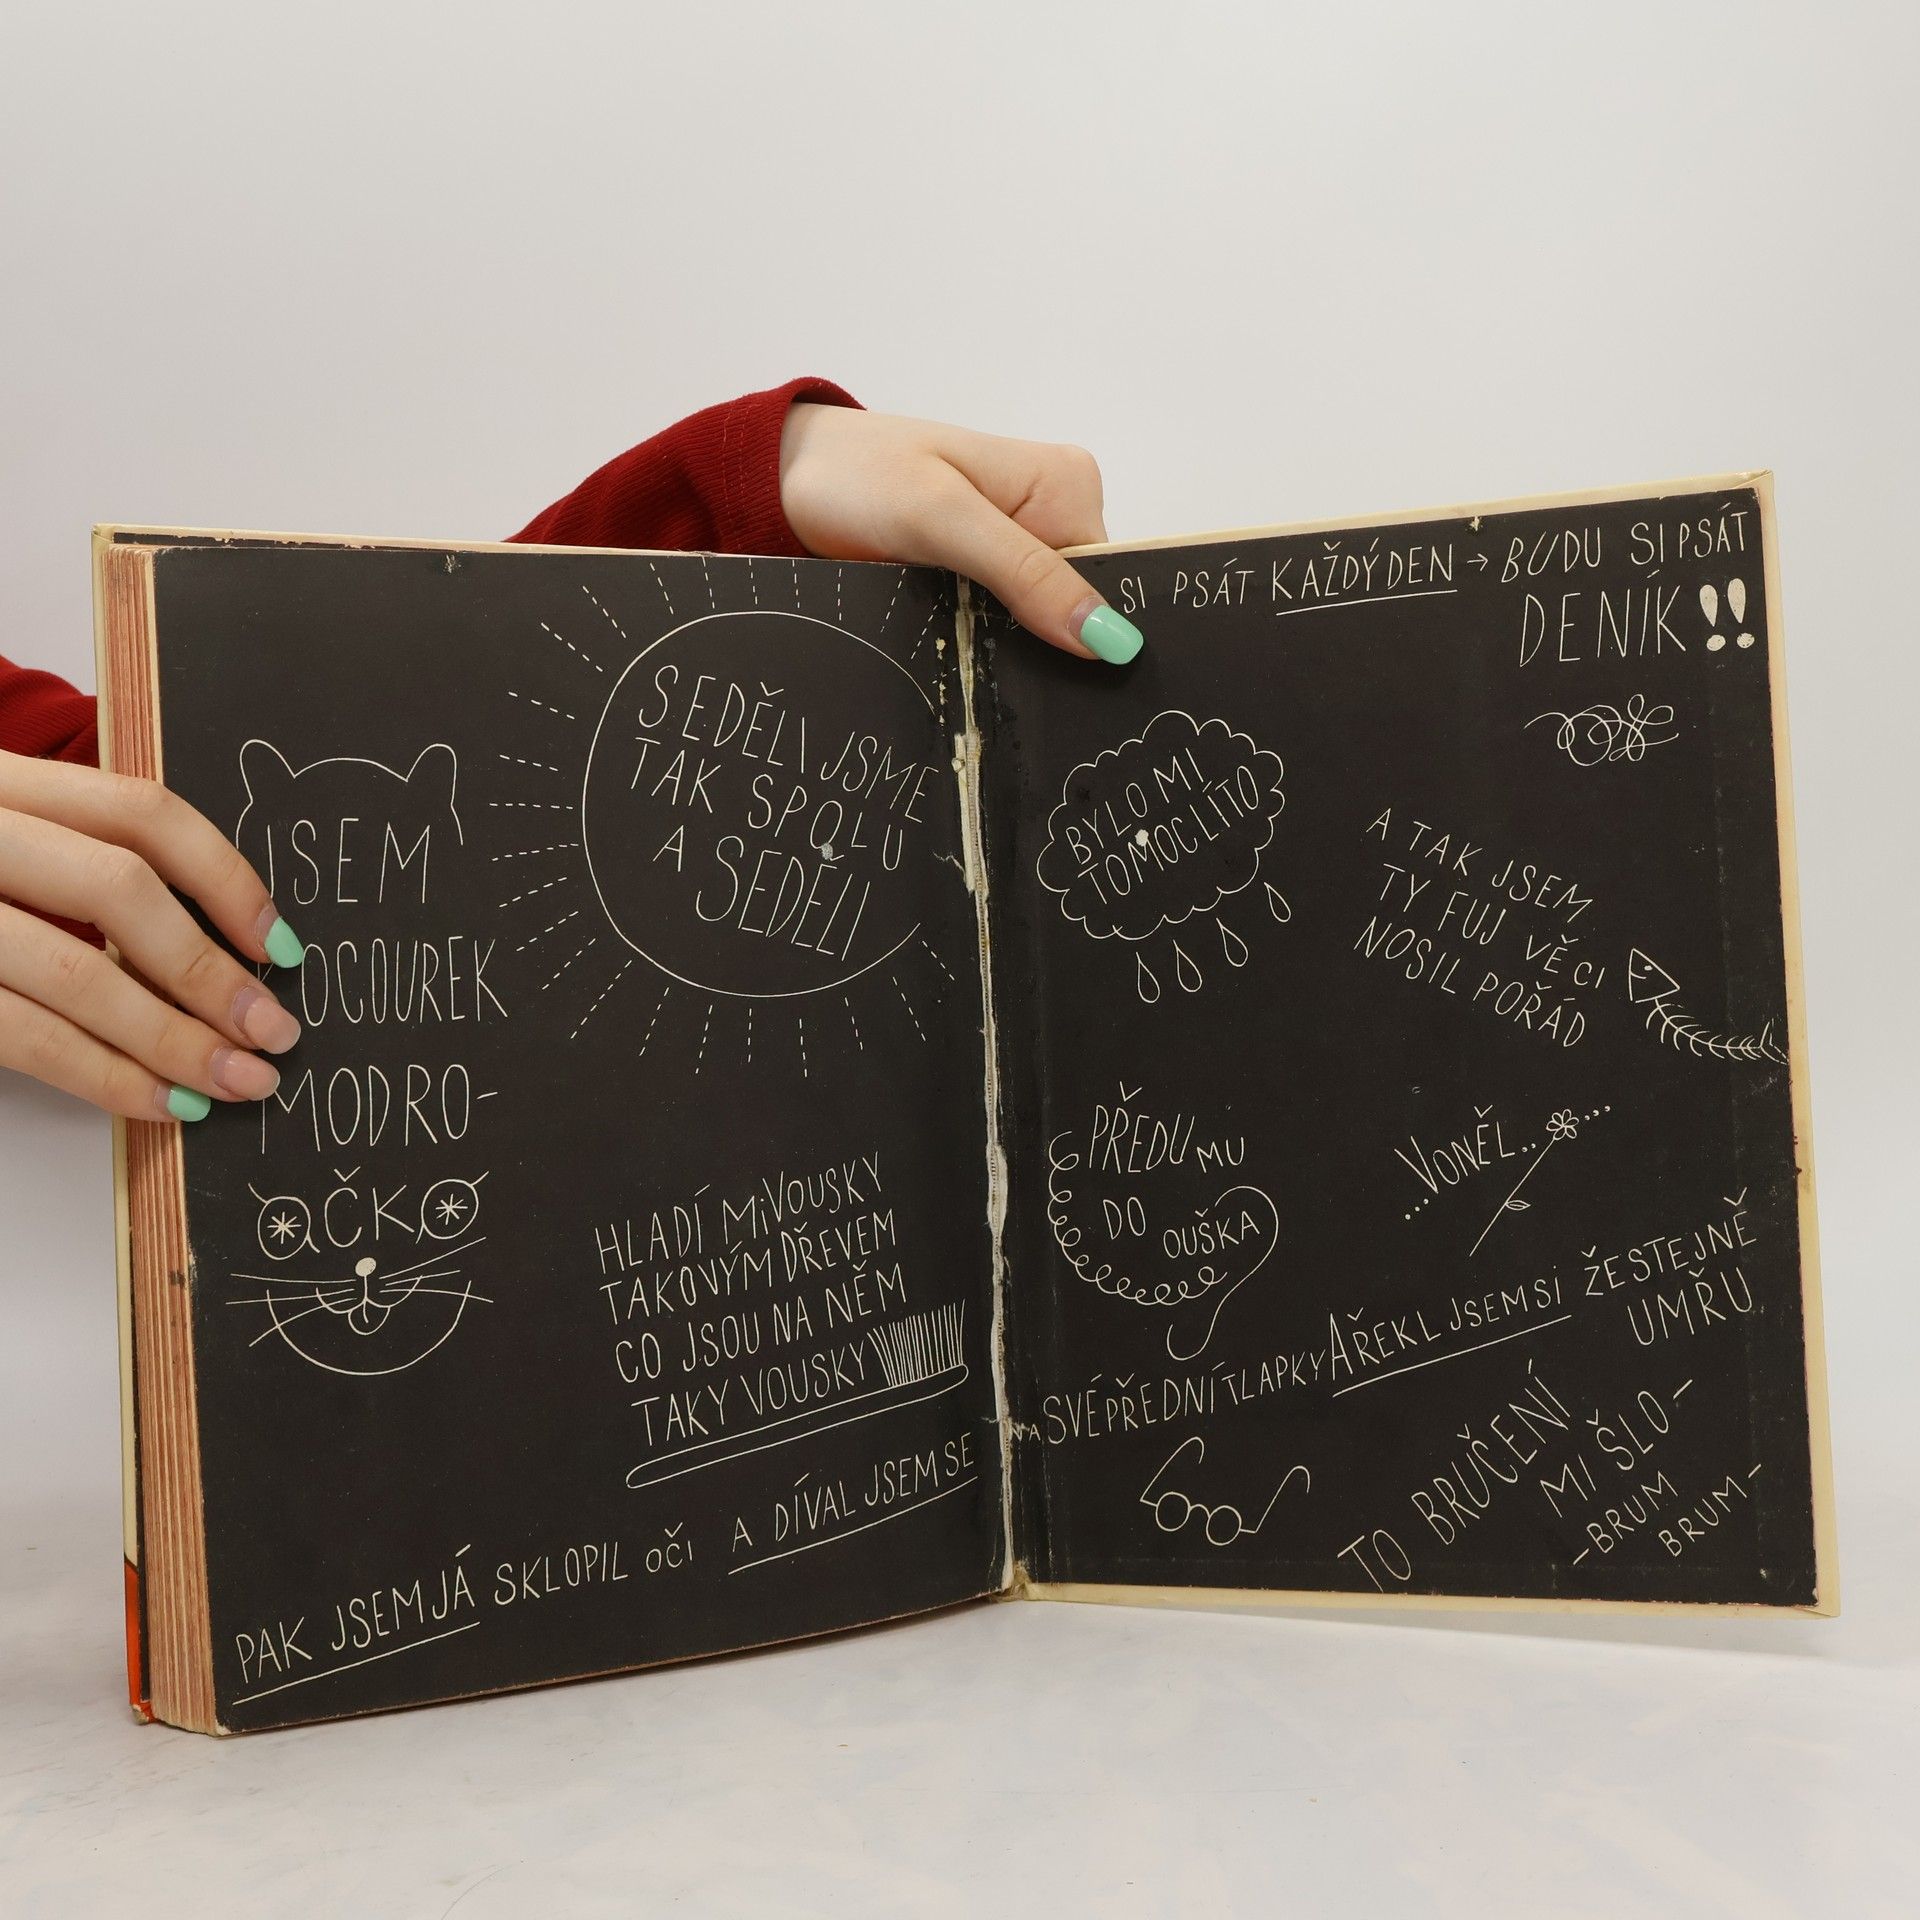 SEDĚLI JSME
TAK SPOLU
A SEDĚLI
JSEM
KOCOUREK
MODRO-
OČKO
HLADÍ MI VOUSKY
TAKOVÝM DŘEVEM
CO JSOU NA NĚM
TAKY VOUSKY
PAK JSEM JÁ SKLOPIL OČI A DÍVAL JSEM SE
SI PSÁT KAŽDÝ DEN → BUDU SI PSÁT
DENÍK!!
BYLO MI
TOMOC LÍTO
A TAK JSEM
TY FUJ VĚCI
NOSIL POŘÁD
PŘEDU MU
DO OUŠKA
...VONĚL.. ...
NA SVÉ PŘEDNÍ TLAPKY A ŘEKL JSEM SI ŽE STEJNĚ
UMŘU
TO BRUČENÍ
MI ŠLO-
-BRUM
BRUM-